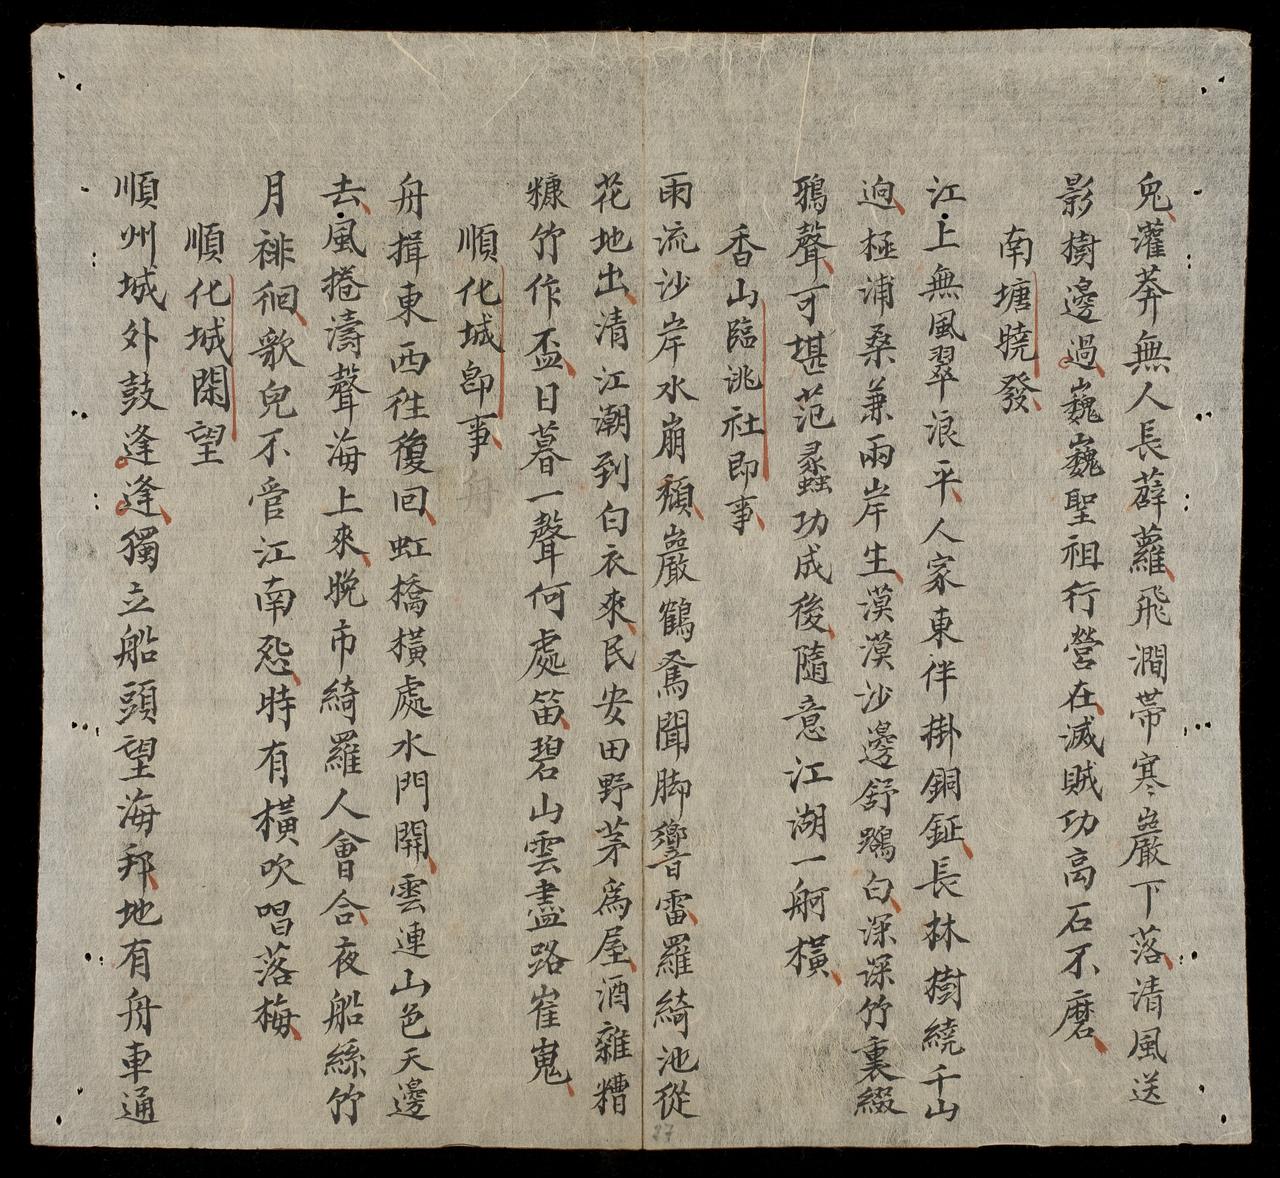 兔灌莽無人長薜蘿飛澗帶寒巖下落清風送
影樹邊過巍巍聖祖行營在滅賊功高石不磨
南塘曉發
江上無風翠浪平人家東伴掛銅鉦長林樹繞千山
逈極浦桑兼兩岸生漠漠沙邊舒鵶白深深竹裏綴
鴉聲可堪范蠡功成後隨意江湖一舸橫
香山臨洮社即事
雨流沙岸水崩頹巖鶴夐聞脚響雷羅綺池從
花地出清江潮到白衣來民安田野茅爲屋酒雜糟
糠竹作盃日暮一聲何處笛碧山雲盡路崔嵬
順化城即事
舟揖東西徃復回虹橋橫處水門開雲連山色天邊
去風捲濤聲海上來晚市綺羅人會合夜船絲竹
月徘徊歌兒不管江南怨時有橫吹唱落梅
順化城閑望
順州城外鼓逢逢獨立船頭望海邦地有舟車通
27